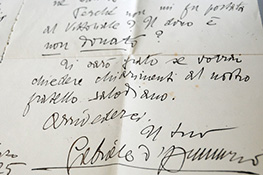 Perché non mi fu portata
al Vittoriale? Il dono è
non donato?
Ti sarò grato se vorrai
chiedere chiarimenti al nostro
fratello salodiano.
Arrivederci.
Il tuo
Gabriele d'Annunzio